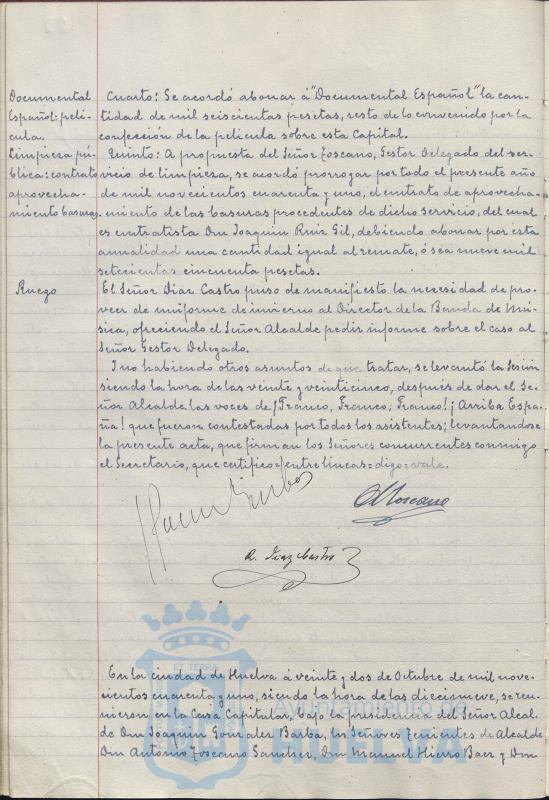 Documental
Español: pelí-
cula.
Cuarto: Se acordó abonar á "Documental Español" la can-
tidad de mil seiscientas pesetas, resto de lo convenido por la
confección de la película sobre esta Capital.
Limpieza pú-
blica: contrato
aprovecha-
miento basuras.
Quinto: A propuesta del Señor Toscano, Gestor Delegado del ser-
vicio de limpieza, se acordó prorrogar por todo el presente año
de mil novecientos cuarenta y uno, el contrato de aprovecha-
miento de las basuras procedentes de dicho servicio, del cual
es contratista Don Joaquin Ruiz Gil, debiendo abonar por esta
anualidad una cantidad igual al remate, ó sea nueve mil
setecientas cincuenta pesetas.
Ruego
El Señor Diaz Castro puso de manifiesto la necesidad de pro-
veer de uniforme de invierno al Director de la Banda de Mú-
sica, ofreciendo el Señor Alcalde pedir informe sobre el caso al
Señor Gestor Delegado.
Y no habiendo otros asuntos de que tratar, se levantó la Sesión
siendo la hora de las veinte y veinticinco, después de dar el Se-
ñor Alcalde las voces de ¡Franco, Franco, Franco! ¡Arriba Espa-
ña! que fueron contestadas por todos los asistentes; levantandose
la presente acta, que firman los Señores concurrentes conmigo
el Secretario, que certifico=entre lineas=digo=vale.
Toscano
A. Diaz Castro
En la ciudad de Huelva á veinte y dos de Octubre de mil nove-
cientos cuarenta y uno, siendo la hora de las diecinueve, se reu-
nieron en la Casa Capitular, bajo la presidencia del Señor Alcal-
de Don Joaquin Gonzalez Barba, los Señores Tenientes de Alcalde
Don Antonio Toscano Sanchez, Don Manuel Hierro Baez y Don
Ayuntamiento de
HUELVA